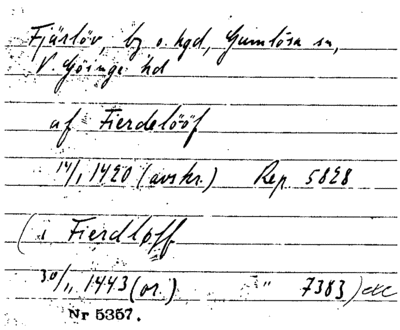 Fjärlöv, by o. hgd, Gumlösa sn,
V. Göinge hd
af Fierdelööf
14/1 1420 (avskr.) Rep. 5828
(i Fierdlöff
30/11 1443 (or.) " 7383) etc
Nr 5357.